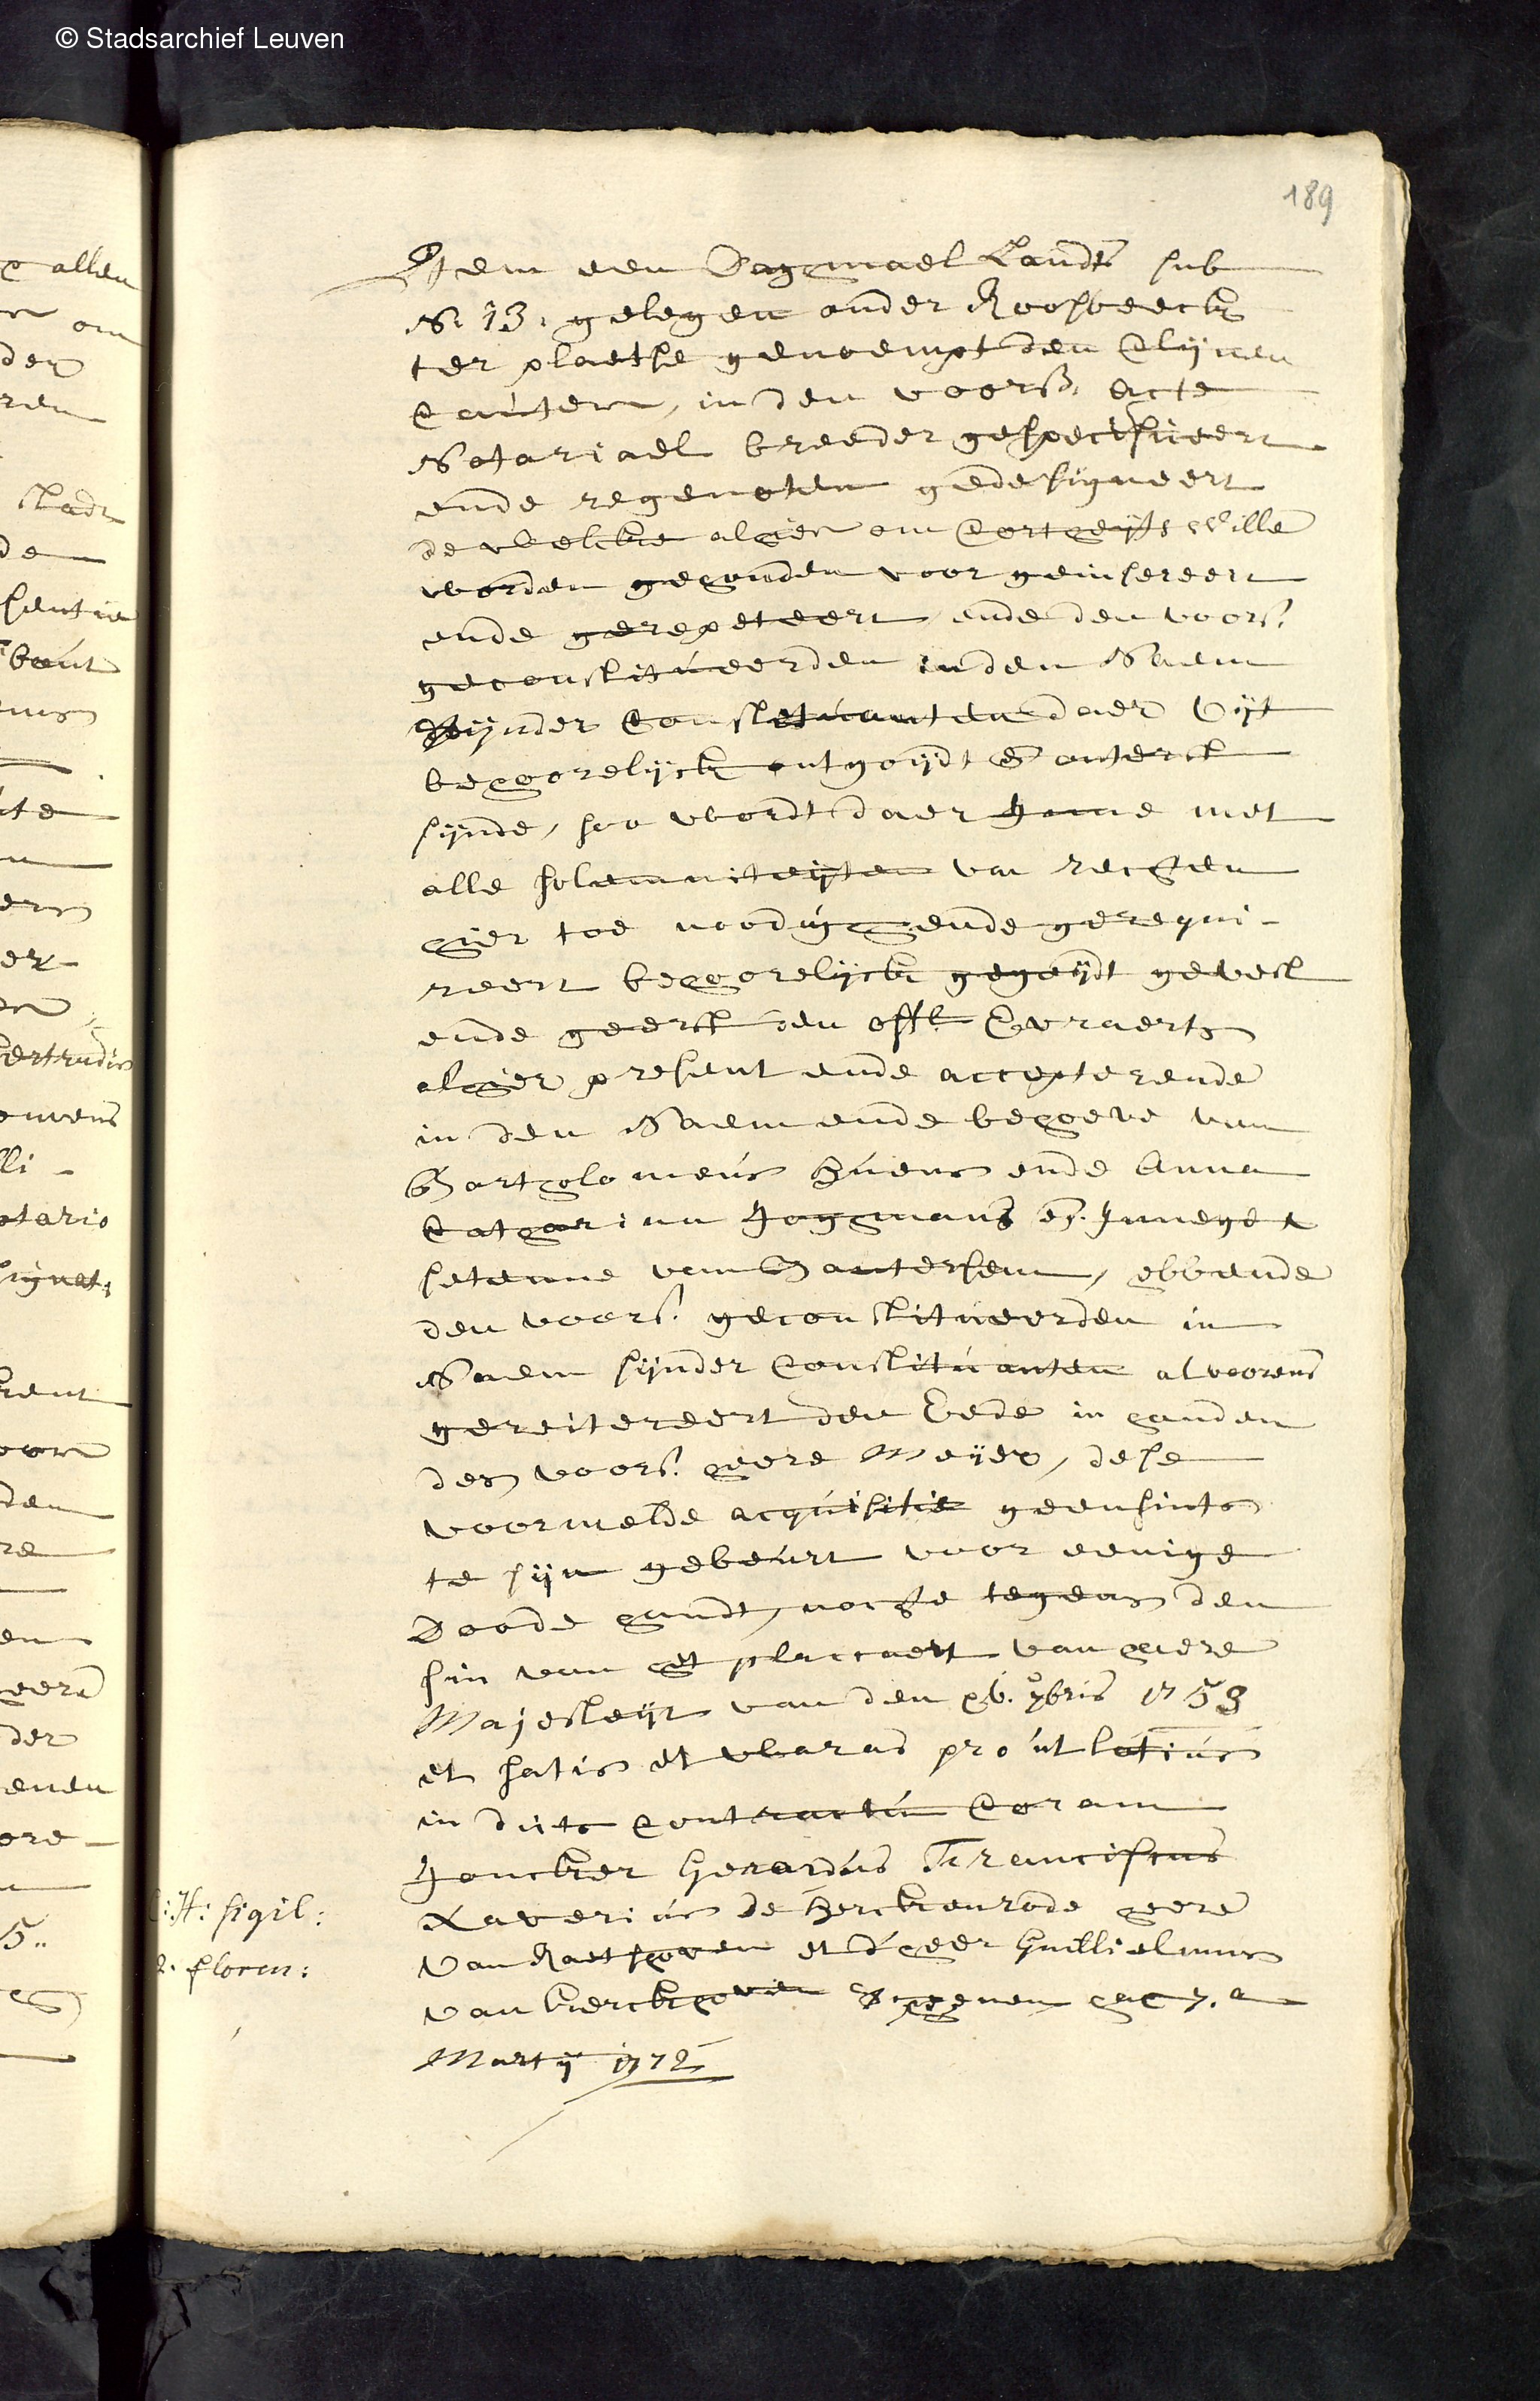 © Stadsarchief Leuven
189
Item een Dagmael Landts sub
N. 13. gelegen onder Roosbeeck
ter plaetse genoempt den Clijnen
Cauter, in den voors. Acte
Notariael breeder gespecifieert
ende regenoten gedesigneert
de welcke alhier om Cortheijts wille
worden gehouden voor geinsereert
ende gerepeteert, ende den voors.
geconstitueerden in den Naem
sijnder Constituanten daer uijt
behoorelijck ontgoijdt & onterft
sijnde, soo wordt daer inne met
alle solemniteijten van rechten
hier toe noodigh ende gerequi-
reert behoorelijck gegoijdt gevest
ende geerft den offl. Everaerts
alhier present ende accepterende
in den Naem ende behoeve van
Bartholomeus Huens ende Anna
Catharina Hogmans es. Innege-
setene van Bautersem, ebbende
den voors. geconstitueerden in
Naem sijnder Constituanten alvoorens
gereitereert den Eede in handen
des voors. heere Meijer, dese
voormelde acquisitie geensints
te sijn gebeurt voor eenige
Doode handt, nochte tegens den
sin van het placcaert van haere
Majesteijt van den 15. 7bris 1753
et satis et waras prout latius
in dicto Contractu Coram
Joncker Gerardus Franciscus
Xaverius de Herckenrode heere
van Raetshoven et d'heer Guillielmus
van Kerckhoven Schepenen hac 7. a
Martij 1772
: H: sigil:
2. floren:
allen
om
der
stadt
de
sentie
ertrudis
li-
otario
signat:
den
re
en
heere
der
enen
ore-